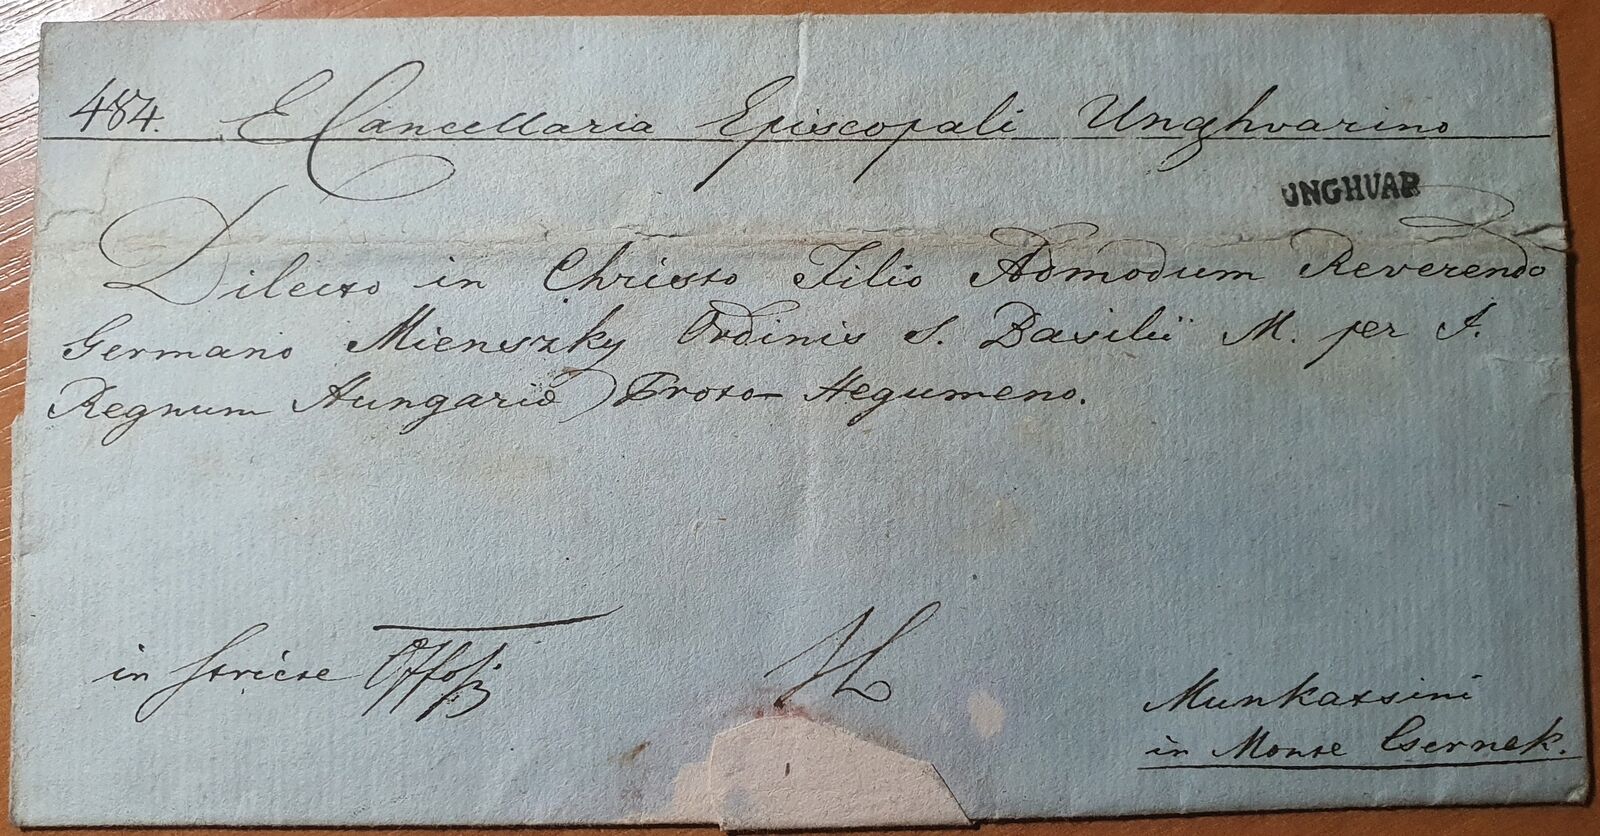 484. E Cancellaria Episcopali Unghvarino
UNGHVAR
Dilecto in Christo Filio Admodum Reverendo
Germano Mienszky Ordinis S. Basilii M. per I.
Regnum Hungariæ Proto-Hegumeno.
in stricte
Munkatsini
in Monte Csernek.